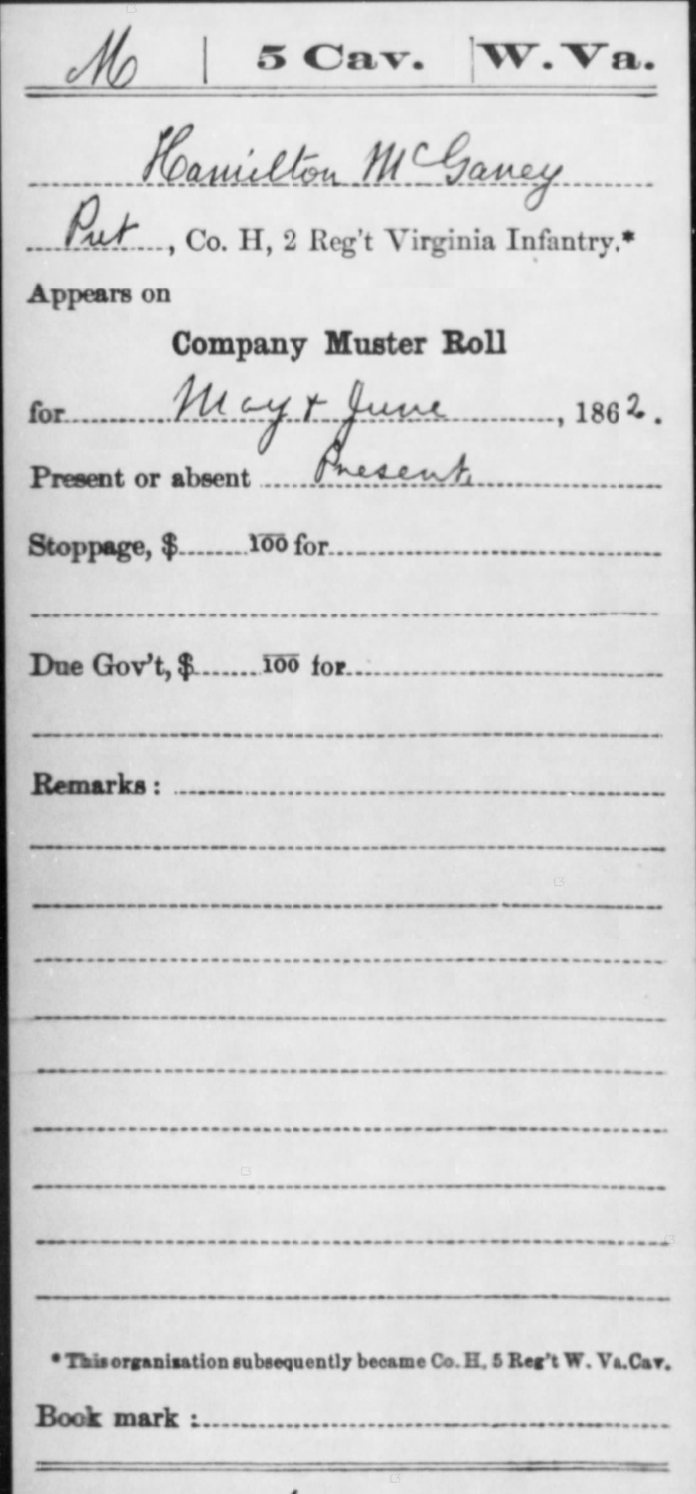 M | 5 Cav. | W. Va.
Hamilton McGaney
Pvt, Co. H, 2 Reg't Virginia Infantry.*
Appears on
Company Muster Roll
for May & June, 1862.
Present or absent Present
Stoppage, $ 100 for
Due Gov't, $ 100 for
Remarks:
*This organization subsequently became Co. H, 5 Reg't W. Va. Cav.
Book mark: